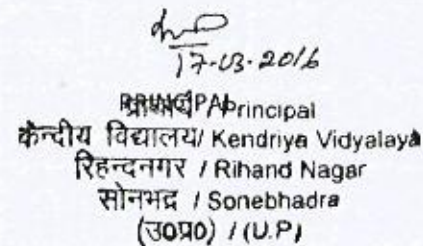 17-03-2016
PRINCIPAL
प्राचार्य / Principal
केन्दीय विद्यालय/ Kendriya Vidyalaya
रिहन्दनगर / Rihand Nagar
सोनभद्र / Sonebhadra
(उ0प्र0) / (U.P)